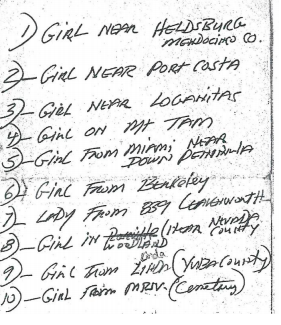 1) GIRL NEAR HELDSBURG
MENDOCINO CO.
2)- GIRL NEAR PORT COSTA
3)- GIRL NEAR LOGANITAS
4- GIRL ON MT TAM
5- GIRL FROM MIAMI NEAR
DOWN PENINULA
6) GIRL FROM BERKELEY
7)- LADY FROM 839 LEAVENWORTH
8)- GIRL IN (NEAR NEVADA
WOODLAND COUNTY
9)- GIRL FROM LINDA (YUBA COUNTY)
10)- GIRL FROM MRSV. (Cemetery)